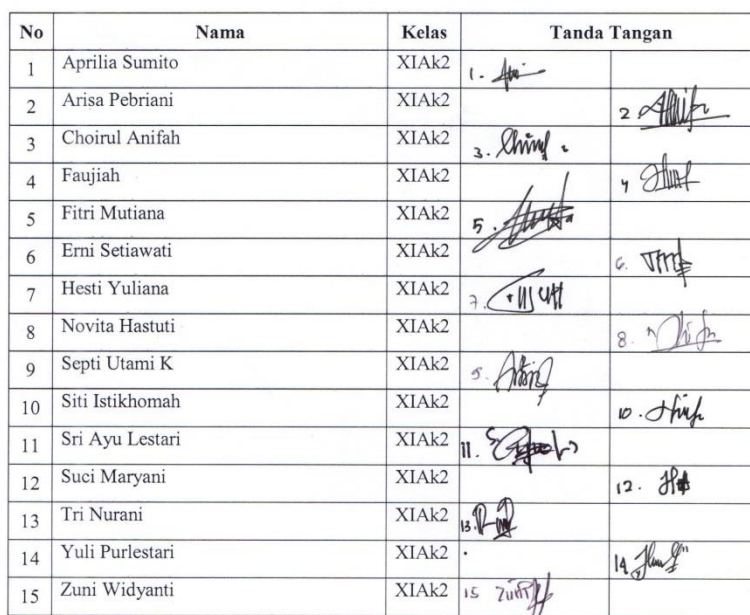 No Nama Kelas Tanda Tangan
1 Aprilia Sumito XIAk2 1.
2 Arisa Pebriani XIAk2 2
3 Choirul Anifah XIAk2 3.
4 Faujiah XIAk2 4
5 Fitri Mutiana XIAk2 5.
6 Erni Setiawati XIAk2 6.
7 Hesti Yuliana XIAk2 7.
8 Novita Hastuti XIAk2 8.
9 Septi Utami K XIAk2 9.
10 Siti Istikhomah XIAk2 10.
11 Sri Ayu Lestari XIAk2 11.
12 Suci Maryani XIAk2 12.
13 Tri Nurani XIAk2 13.
14 Yuli Purlestari XIAk2 14
15 Zuni Widyanti XIAk2 15